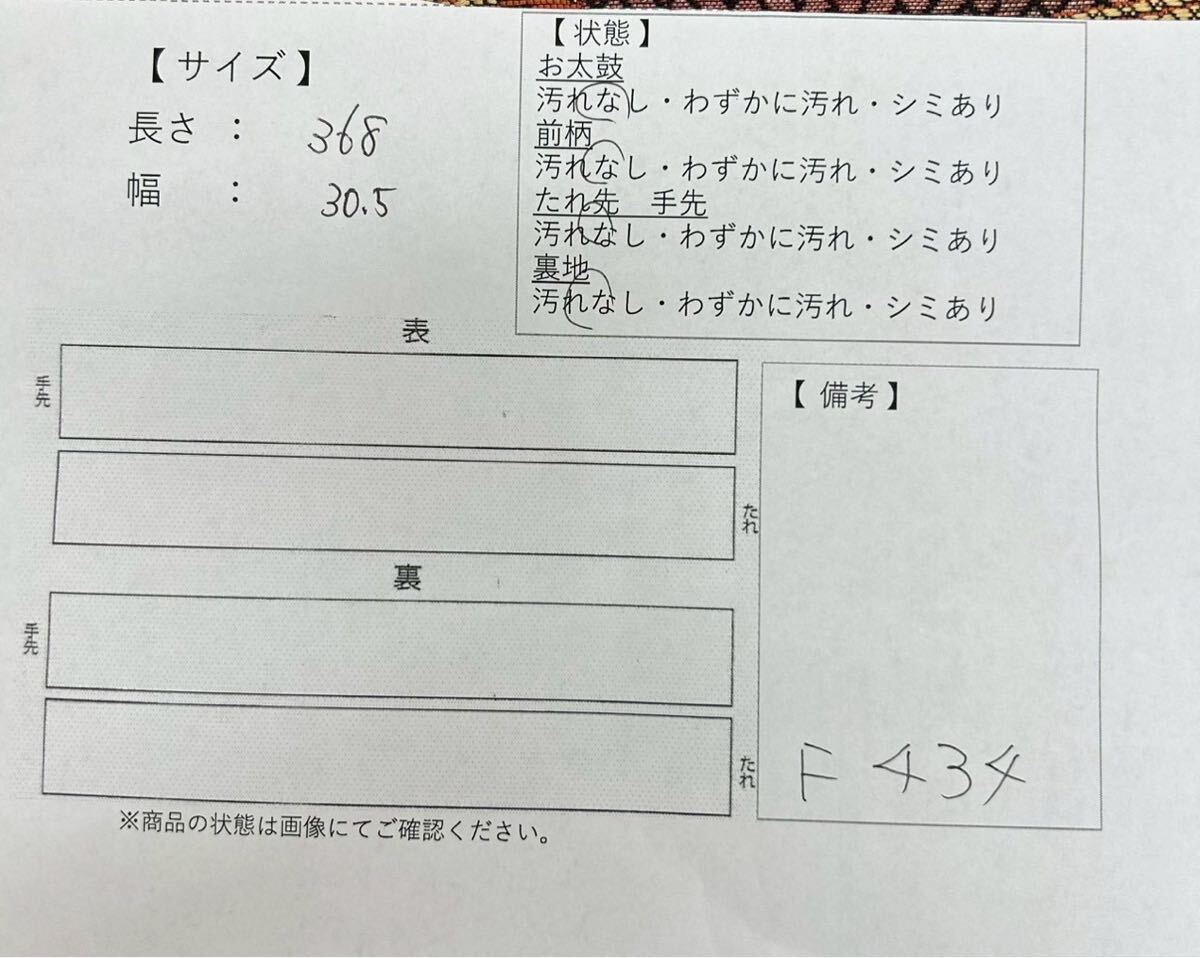 【 サイズ 】
長さ ： 368
幅 ： 30.5
【 状態 】
お太鼓
汚れなし・わずかに汚れ・シミあり
前柄
汚れなし・わずかに汚れ・シミあり
たれ先 手先
汚れなし・わずかに汚れ・シミあり
裏地
汚れなし・わずかに汚れ・シミあり
表
手先
たれ
裏
手先
たれ
※商品の状態は画像にてご確認ください。
【 備考 】
F 434